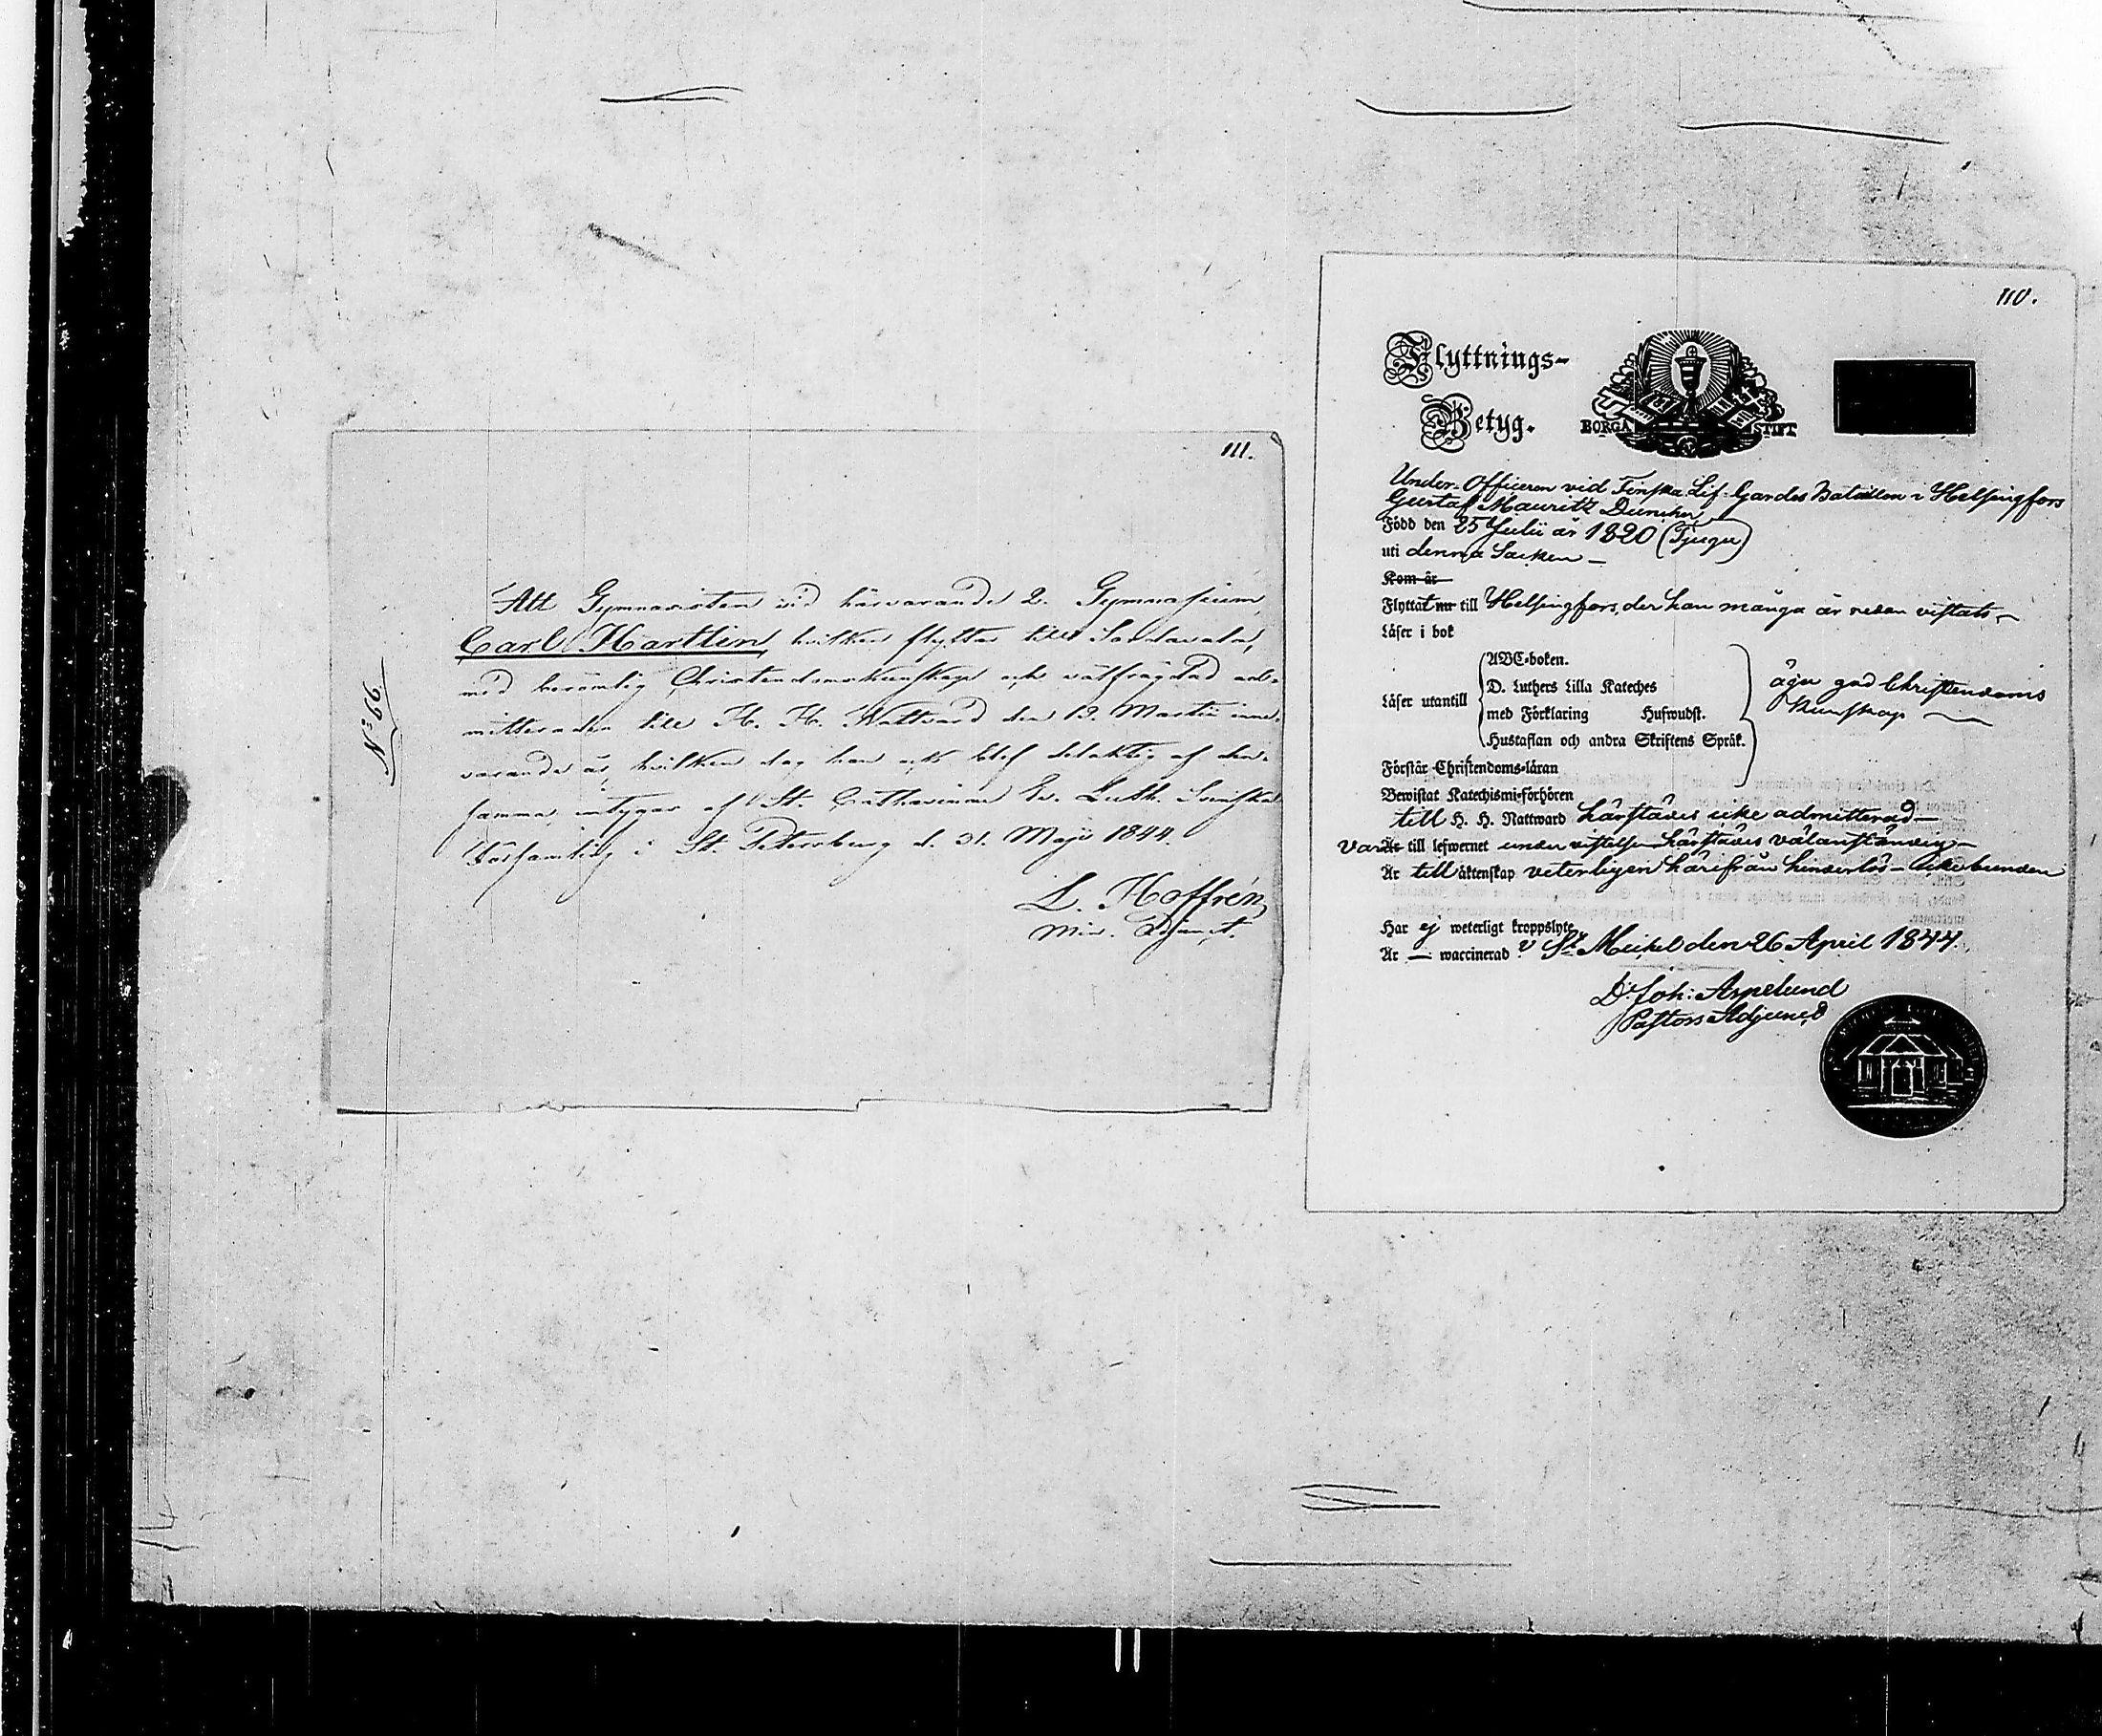 111.
N:o 66.
Att Gymnasisten vid härvarande 2. Gymnasium,
Carl Hartlin, hvilken flyttar till Sordavala,
med berömlig Christendomskunskap och välfrägdad ad-
mitterades till H. H. Nattvard den 13. Martii inne-
varande år, hvilken dag han ock blef delaktig af den-
samma, intygar af St. Catharinæ Ev. Luth. Svenska
Församling i St. Petersburg d. 31. Maji 1844.
L. Hoffrén
Min. Adjunct.
110.
Flyttnings-
Betyg.
BORGÅ STIFT
Under-Officeren vid Finska Lif-Gardes Bataillon i Helsingfors
Gustaf Mauritz Duncker
Född den 25 Julii år 1820 (Tjugu)
uti denna Socken –
Kom år
Flyttat nu till Helsingfors, der han många år redan vistats –
Läser i bok
Läser utantill
ABC-boken.
D. Luthers Lilla Kateches
med Förklaring Hufwudst.
Hustaflan och andra Skriftens Språk.
äger god Christendoms
kunskap –
Förstår Christendoms-läran
Bewistat Katechismi-förhören
till H. H. Nattward härstädes icke admitterad –
Var Är till lefwernet under vistelsen härstädes välanständig –
Är till äktenskap veterligen härifrån hinderlös – icke bunden
Har ej weterligt kroppslyte,
Är — waccinerad? St Michel den 26 April 1844.
D. Joh: Aspelund
Pastors Adjunct